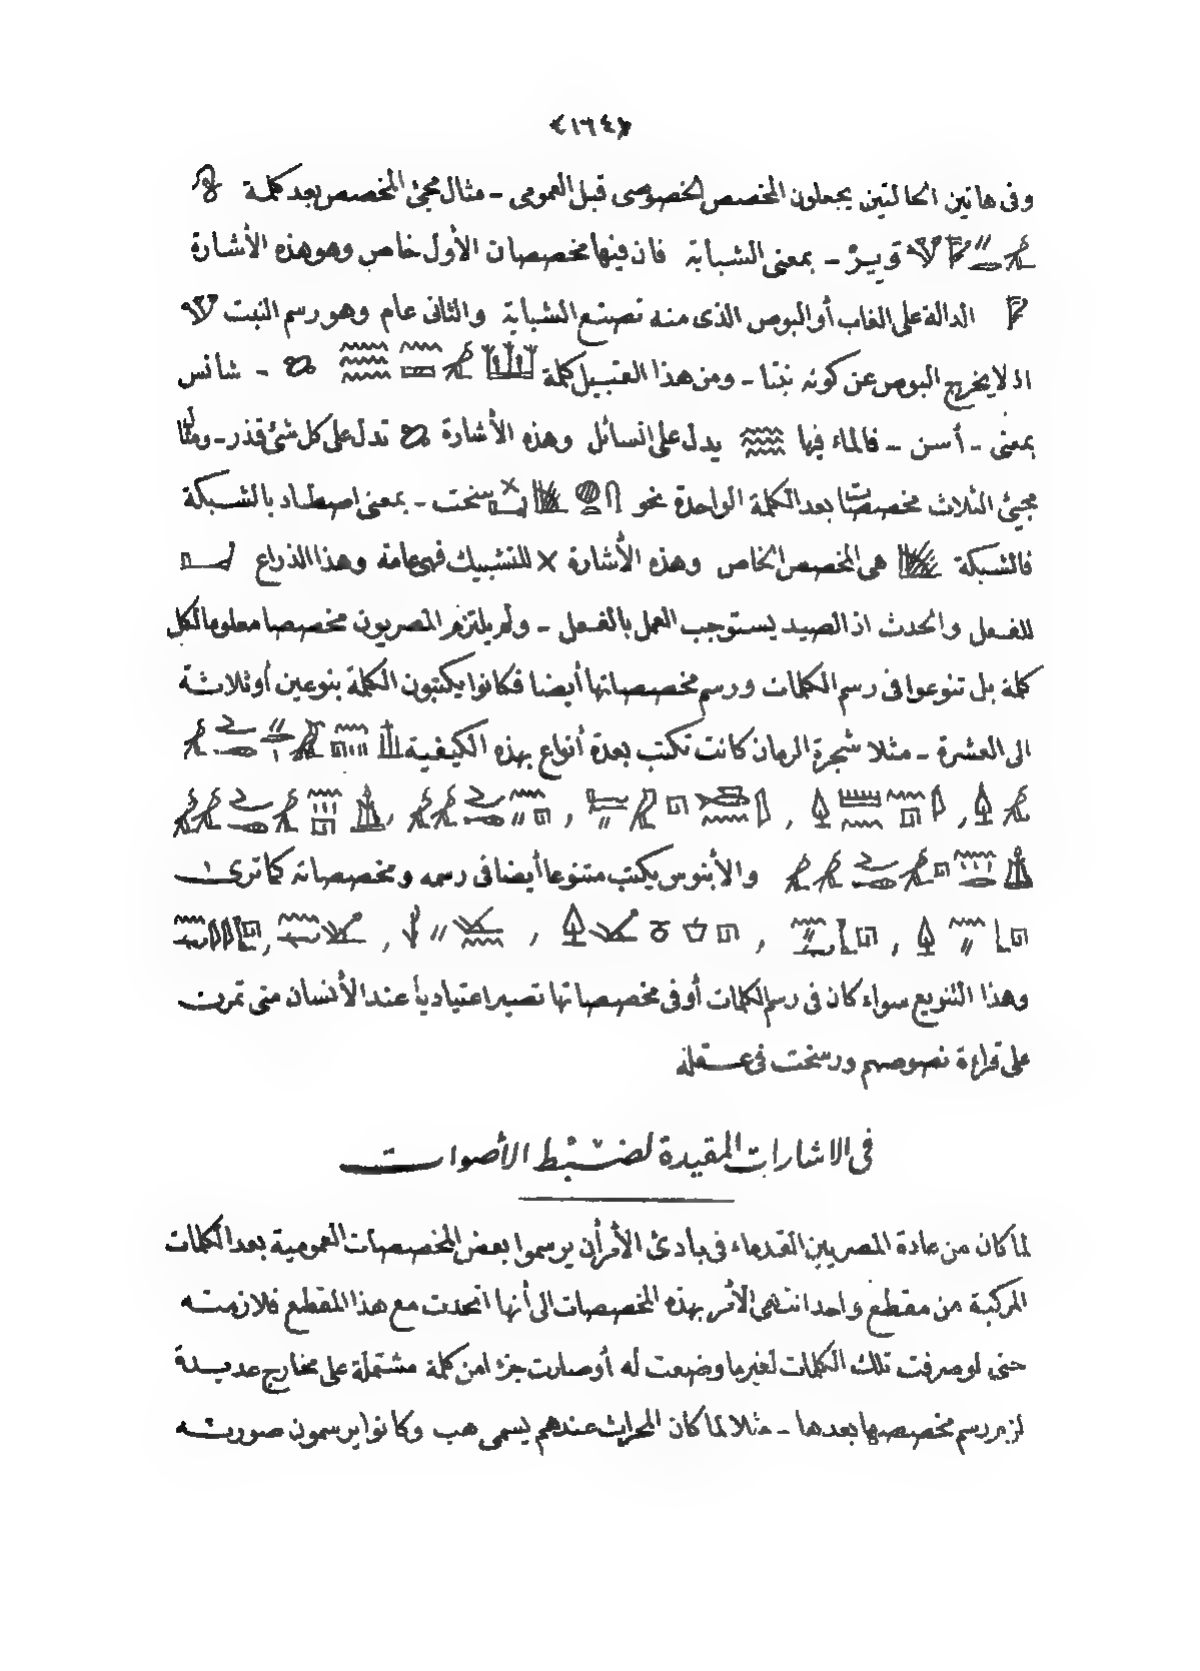 ﴿١٦٤﴾
وفى هاتين الحالتين يجعلون المخصص الخصوصى قبل العمومى – مثال مجئ المخصص بعد كلمة
ويـر – بمعنى الشبابة فان فيها مخصصان الأول خاص وهو هذه الأشارة
الدالة على الغاب أو البوص الذى منه تصنع الشبابة والثانى عام وهو رسم النبت
اذ لا يخرج البوص عن كونه نبتا – ومن هذا القبيل كلمة – شانس
بمعنى – أسن – فالماء فيها يدل على السائل وهذه الأشارة تدل على كل شئ قذر – ومثال
مجئ الثلاث مخصصات بعد الكلمة الواحدة نحو سخت – بمعنى اصطاد بالشبكة
فالشبكة هى المخصص الخاص وهذه الأشارة × للتشبيك فهى عامة وهذا الذراع
للفعل والحدث اذ الصيد يستوجب العمل بالفعل – ولم يلتزم المصريون مخصصا معلوما لكل
كلمة بل تنوعوا فى رسم الكلمات ورسم مخصصاتها أيضا فكانوا يكتبون الكلمة بنوعين أو ثلاثة
الى العشرة – مثلا شجرة الرمان كانت تكتب بعدة أنواع بهذه الكيفية
والأبنوس يكتب متنوعا أيضا فى رسمه ومخصصاته كما ترى
وهذا التنويع سواء كان فى رسم الكلمات أو فى مخصصاتها تصير اعتياديا عند الأنسان متى تمرن
على قراءة نصوصهم ورسخت فى عقله
فى الاشارات المقيدة لضبط الأصوات
لما كان من عادة المصريين القدماء فى بادئ الأمر أن يرسموا بعض المخصصات العمومية بعد الكلمات
المركبة من مقطع واحد انتهى الأمر بهذه المخصصات الى أنها اتحدت مع هذا المقطع فلازمته
حتى لو صرفت تلك الكلمات لغير ما وضعت له أو صارت جزءا من كلمة مشتملة على مخارج عديدة
لزم رسم مخصصها بعدها – مثلا لما كان المحراث عندهم يسمى هب وكانوا يرسمون صورته